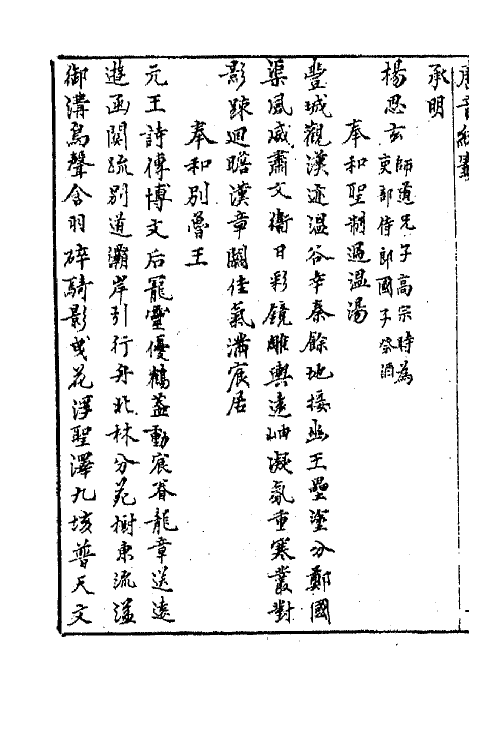 唐音統籤
承明
楊思玄師道兄子高宗時為
吏部侍郎國子祭酒
奉和聖制過溫湯
豐城觀漢迹溫谷幸秦餘地接幽王壘塗分鄭國
渠風威肅文衛日彩鏡雕輿遠岫凝氛重寒叢對
影疎迴瞻漢章闕佳氣滿宸居
奉和別魯王
元王詩傳博文后寵靈優鶴蓋動宸眷龍章送遠
遊函關疏別道灞岸引行舟北林分苑樹東流溢
御溝鳥聲含羽碎騎影曳花浮聖澤九垓普天文